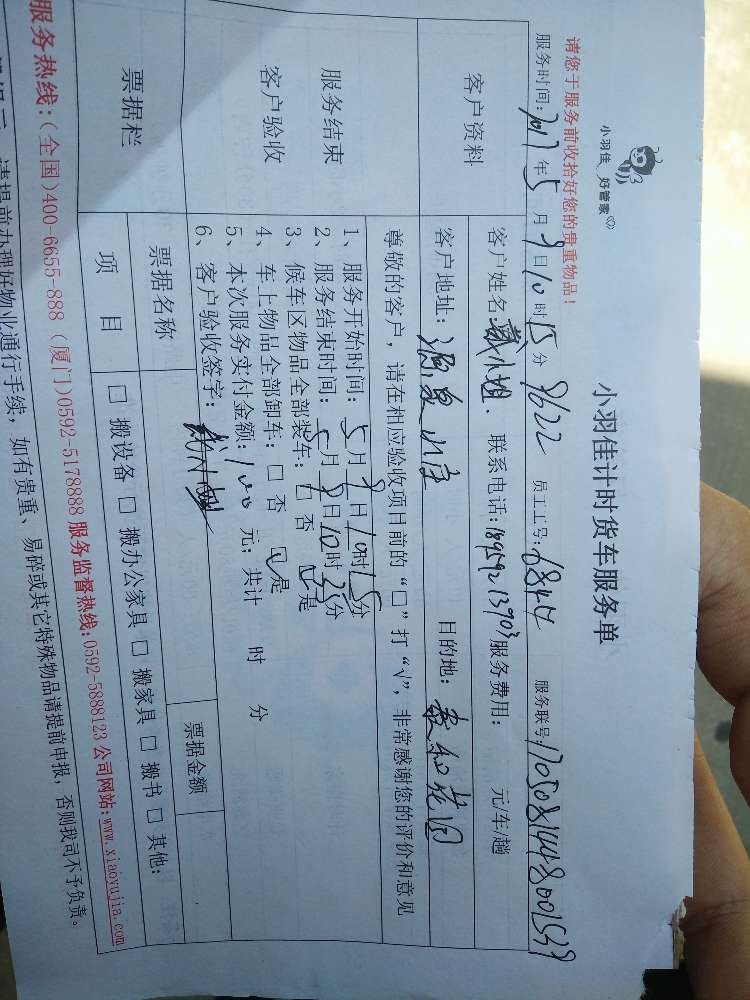 小羽佳 好管家
小羽佳计时货车服务单
请您于服务前收拾好您的贵重物品！
服务时间：2017年5月9日10时15分 9622 员工工号：6844 服务联号：
客户资料
客户姓名：戴小姐 联系电话：18959213903 服务费用： 元/车/趟
客户地址： 目的地：泰和花园
服务结束
客户验收
尊敬的客户，请在相应验收项目前的“□”打“√”，非常感谢您的评价和意见
1、服务开始时间：5月9日10时15分
2、服务结束时间：5月9日10时25分
3、候车区物品全部装车：□ 否 ☑是
4、车上物品全部卸车：□ 否 ☑是
5、本次服务实付金额：100 元；共计 时 分
6、客户验收签字：
票据栏
票据名称 票据金额
项 目 □ 搬设备 □ 搬办公家具 □ 搬家具 □ 搬书 □ 其他：
服务热线：(全国)400-6655-888 (厦门)0592-5178888 服务监督热线：0592-5888123 公司网站：www.xiaoyujia.com
请提前办理好物业通行手续，如有贵重、易碎或其它特殊物品请提前申报，否则我司不予负责。